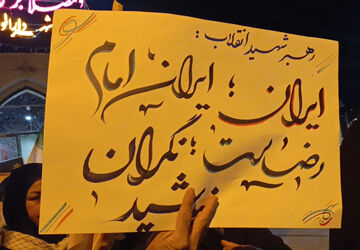 رهبر شهید انقلاب:
ایران؛ ایران امام
رضاست؛ نگران
نباشید